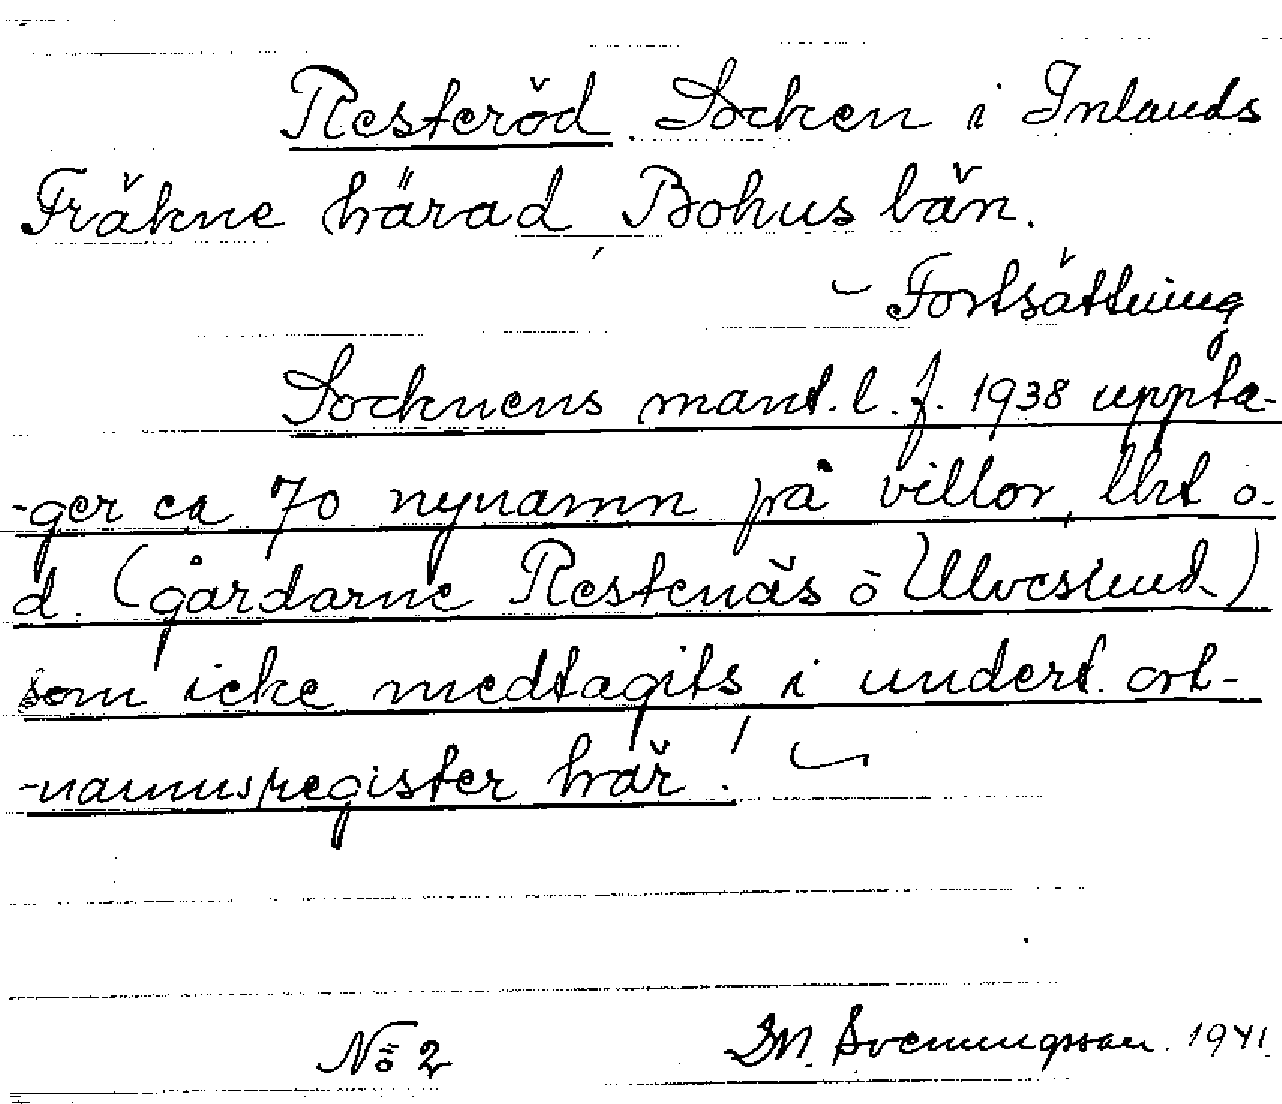 Resteröd. Socken i Inlands
Fräkne härad, Bohus län.
- Fortsättning
Socknens mant. l. f. 1938 uppta-
-ger ca 70 nynamn på villor, lht o.
d. (gårdarne Restenäs o Ulveslund)
som icke medtagits i undert. ort-
-namnsregister här!
No 2 M. Svenningsson. 1941.